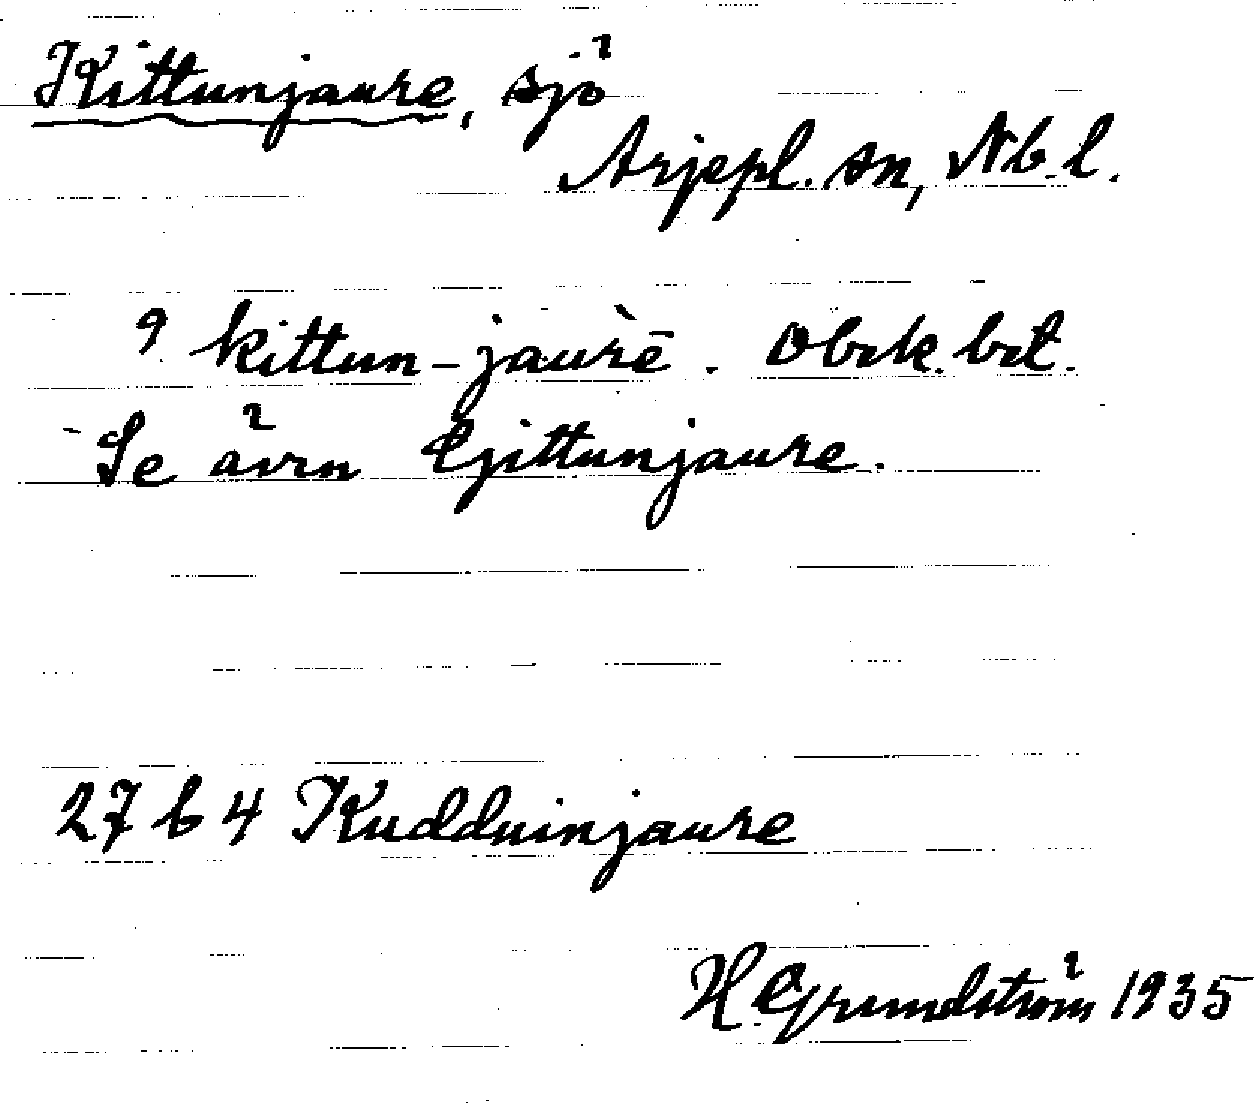 Kittunjaure, sjö
Arjepl. sn, Nb. l.
kittun-jaurē. Obrk. bet.
Se även Gjittunjaure.
27 b 4 Kudduinjaure
H Grundström 1935